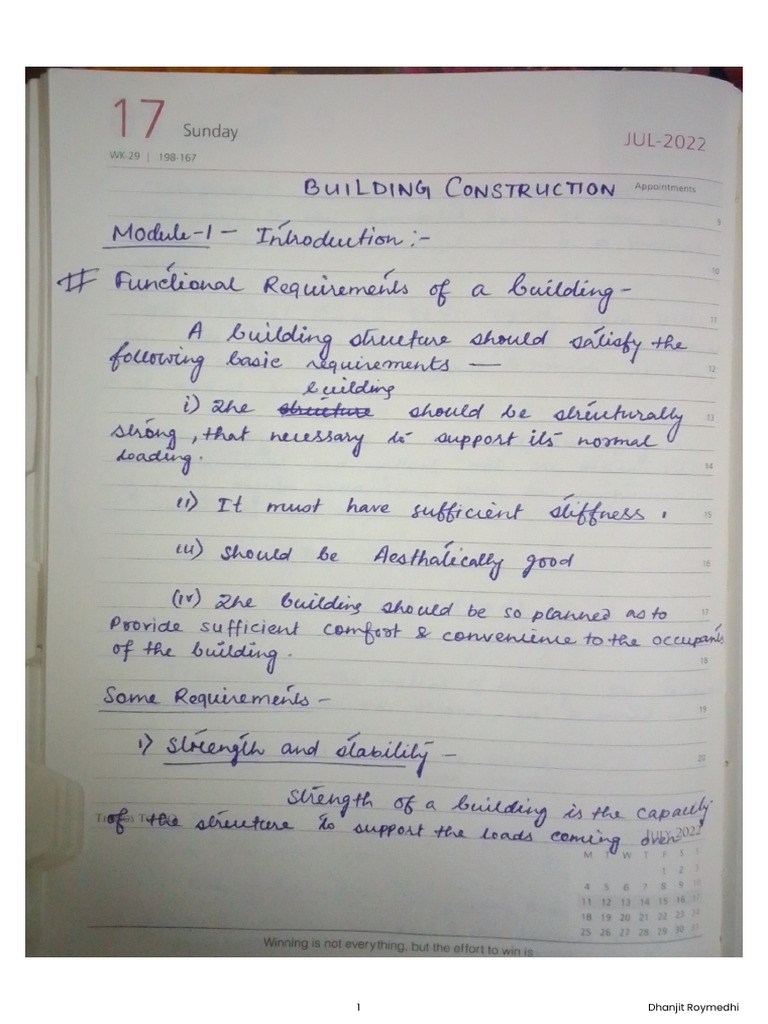 17 Sunday
JUL-2022
WK-29 | 198-167
BUILDING CONSTRUCTION Appointments
9
Module-1 - Introduction :-
10
# Functional Requirements of a building -
11
A building structure should satisfy the
following basic requirements —
12
building
i) The structure should be structurally
13
strong, that necessary to support its normal
loading.
14
ii) It must have sufficient stiffness.
15
iii) should be Aesthatically good
16
(iv) The building should be so planned as to
17
Provide sufficient comfort & convenience to the occupants
of the building.
18
Some Requirements -
19
i) Strength and stability -
20
Strength of a building is the capacity
of the structure to support the loads coming over
JULY 2022
M T W T F S S
1 2 3
4 5 6 7 8 9 10
11 12 13 14 15 16 17
18 19 20 21 22 23 24
25 26 27 28 29 30 31
Winning is not everything, but the effort to win is
1
Dhanjit Roymedhi